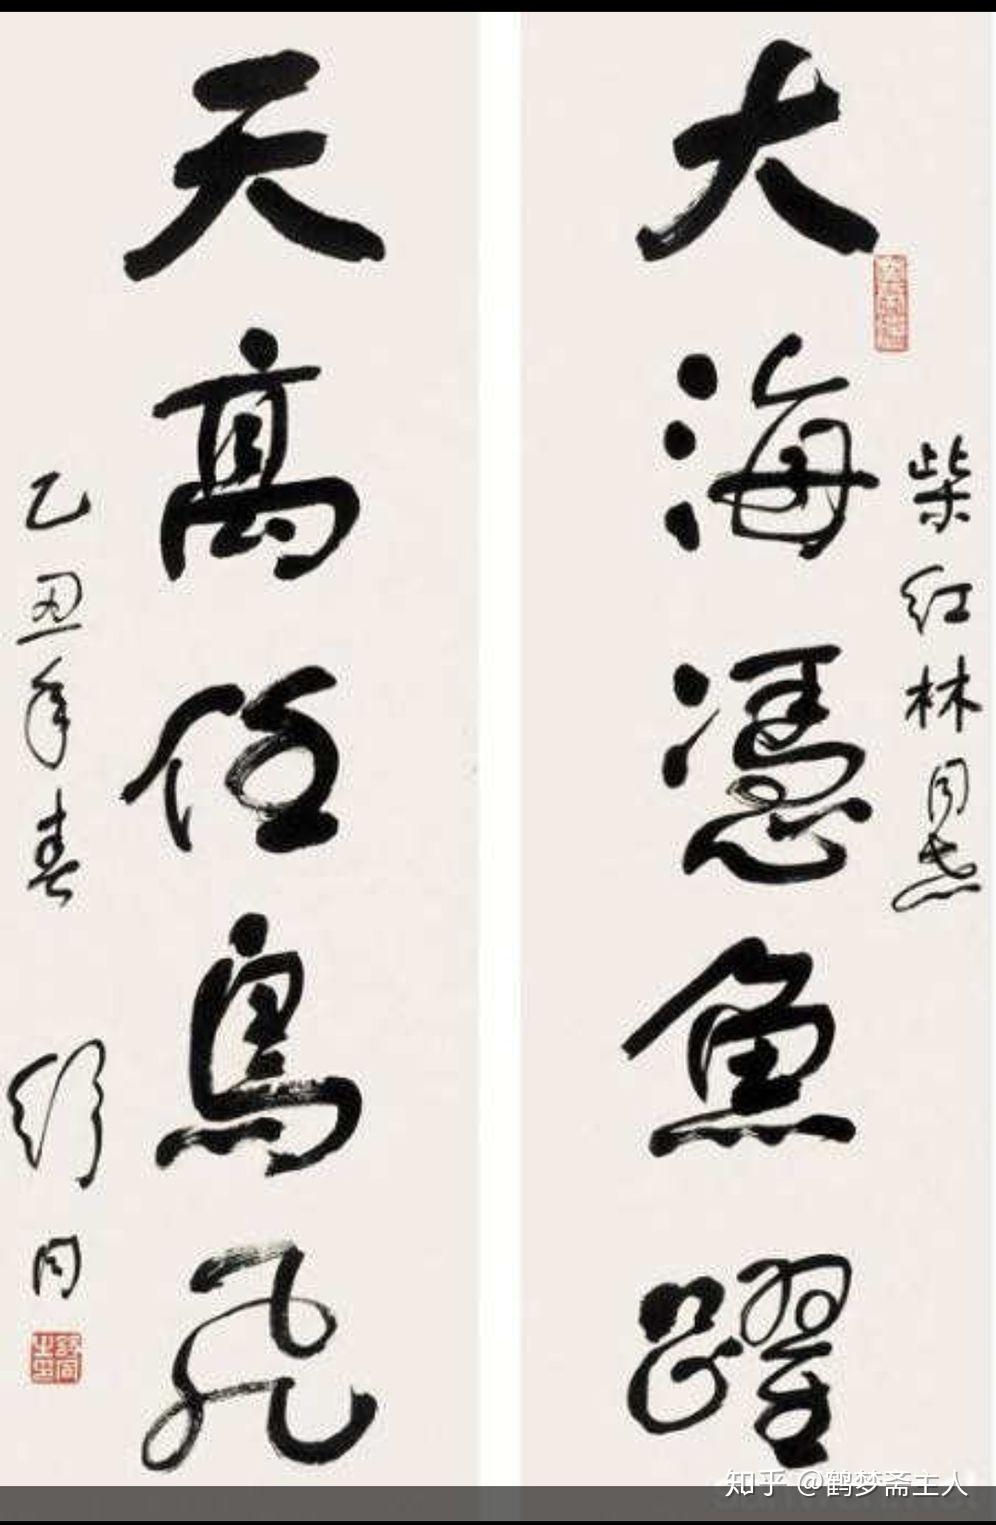 大海憑魚躍
柴红林同志
天高任鳥飛
乙丑年春
舒同
知乎 @鹤梦斋主人